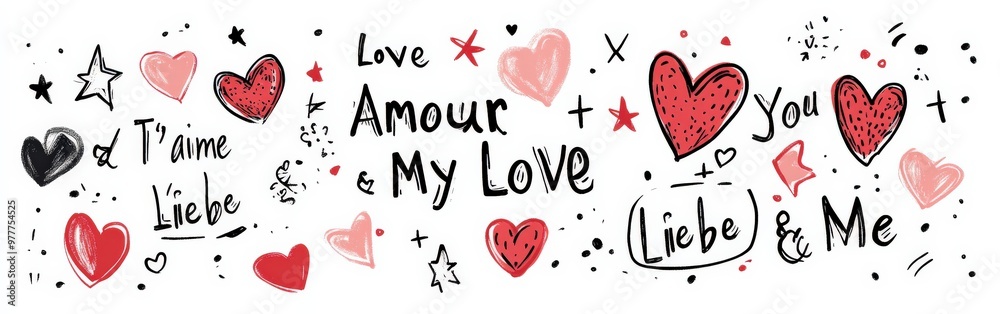 T'aime
Liebe
Love
Amour
& My Love
You
Liebe
& Me
Adobe Stock | #977754525